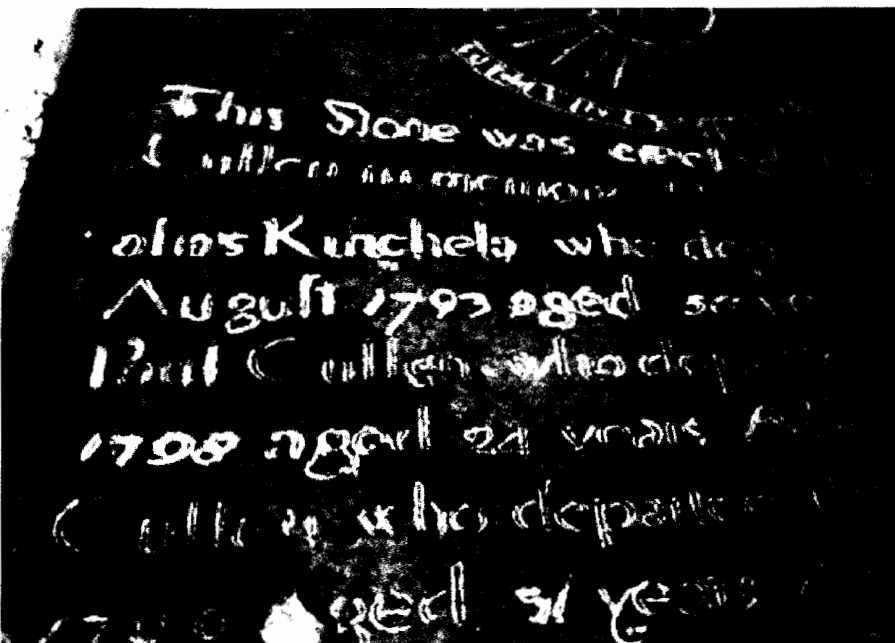 This Stone was erect
Cullen in memory
alias Kinchela who dep
August 1793 aged seve
Paul Cullen who dep
1798 aged 21 years
Cullen who departe
aged 51 years